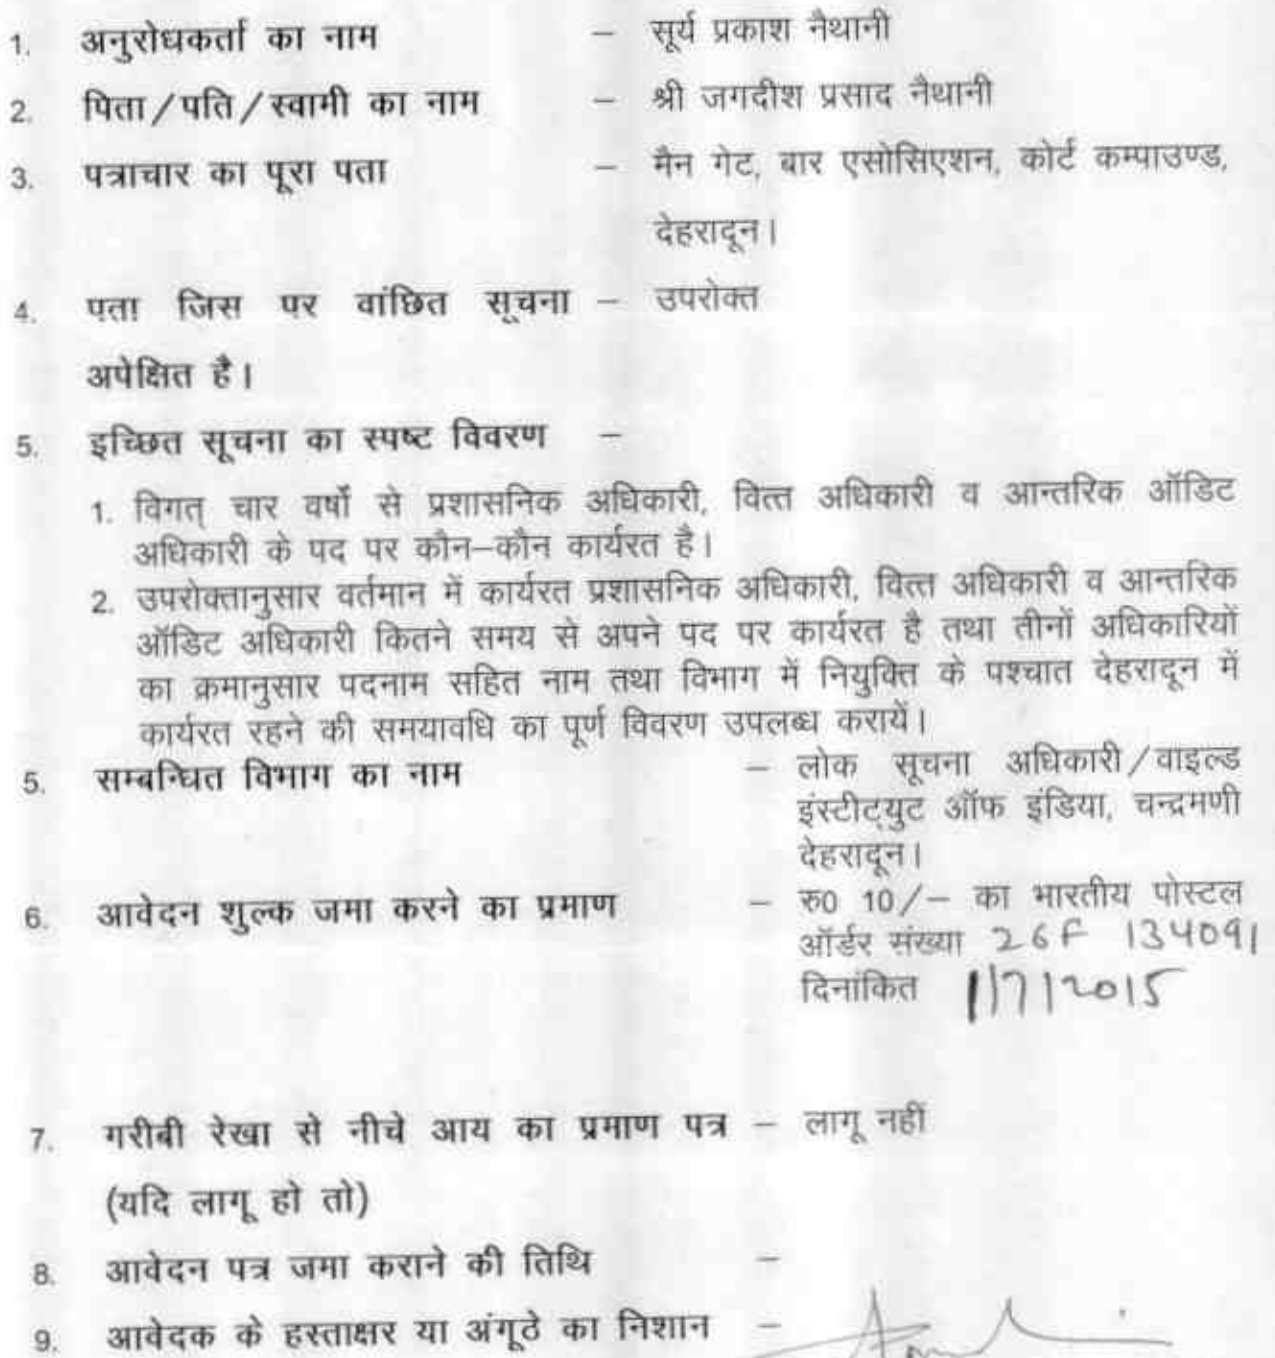 1. अनुरोधकर्ता का नाम – सूर्य प्रकाश नैथानी
2. पिता/पति/स्वामी का नाम – श्री जगदीश प्रसाद नैथानी
3. पत्राचार का पूरा पता – मैन गेट, बार एसोसिएशन, कोर्ट कम्पाउण्ड,
देहरादून।
4. पता जिस पर वांछित सूचना – उपरोक्त
अपेक्षित है।
5. इच्छित सूचना का स्पष्ट विवरण –
1. विगत् चार वर्षो से प्रशासनिक अधिकारी, वित्त अधिकारी व आन्तरिक ऑडिट
अधिकारी के पद पर कौन–कौन कार्यरत है।
2. उपरोक्तानुसार वर्तमान में कार्यरत प्रशासनिक अधिकारी, वित्त अधिकारी व आन्तरिक
ऑडिट अधिकारी कितने समय से अपने पद पर कार्यरत है तथा तीनों अधिकारियों
का क्रमानुसार पदनाम सहित नाम तथा विभाग में नियुक्ति के पश्चात देहरादून में
कार्यरत रहने की समयावधि का पूर्ण विवरण उपलब्ध करायें।
5. सम्बन्धित विभाग का नाम – लोक सूचना अधिकारी/वाइल्ड
इंस्टीट्युट ऑफ इंडिया, चन्द्रमणी
देहरादून।
6. आवेदन शुल्क जमा करने का प्रमाण – रु0 10/– का भारतीय पोस्टल
ऑर्डर संख्या 26F 134091
दिनांकित 1/7/2015
7. गरीबी रेखा से नीचे आय का प्रमाण पत्र – लागू नहीं
(यदि लागू हो तो)
8. आवेदन पत्र जमा कराने की तिथि –
9. आवेदक के हस्ताक्षर या अंगूठे का निशान –